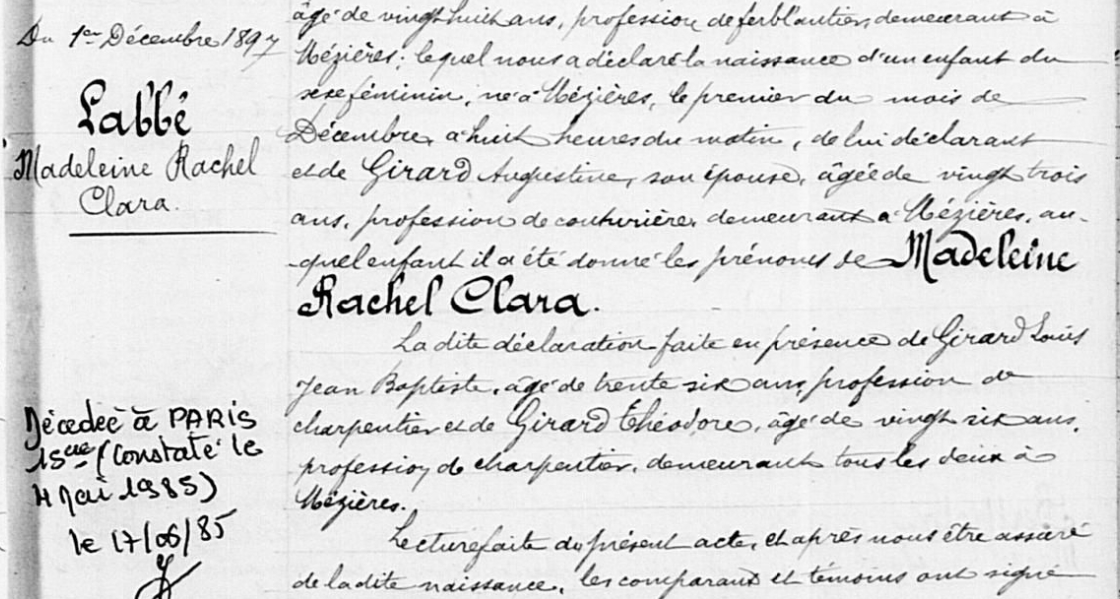 Du 1er Décembre 1897
Labbé
Madeleine Rachel
Clara.
Décédée à PARIS
15ème (Constaté le
4 Mai 1985)
le 17/06/85
âgé de vingt huit ans, profession de ferblantier, demeurant à
Mézières; lequel nous a déclaré la naissance d'un enfant du
sexe féminin, né à Mézières, le premier du mois de
Décembre, à huit heures du matin, de lui déclarant
et de Girard Augustine, son épouse, âgée de vingt trois
ans, profession de couturière, demeurant à Mézières, au-
quel enfant il a été donné les prénoms de Madeleine
Rachel Clara.
La dite déclaration faite en présence de Girard Louis
Jean Baptiste, âgé de trente six ans, profession de
charpentier et de Girard Théodore, âgé de vingt six ans,
profession de charpentier, demeurant tous les deux à
Mézières.
Lecture faite du présent acte, et après nous être assuré
de la dite naissance, les comparant et témoins ont signé